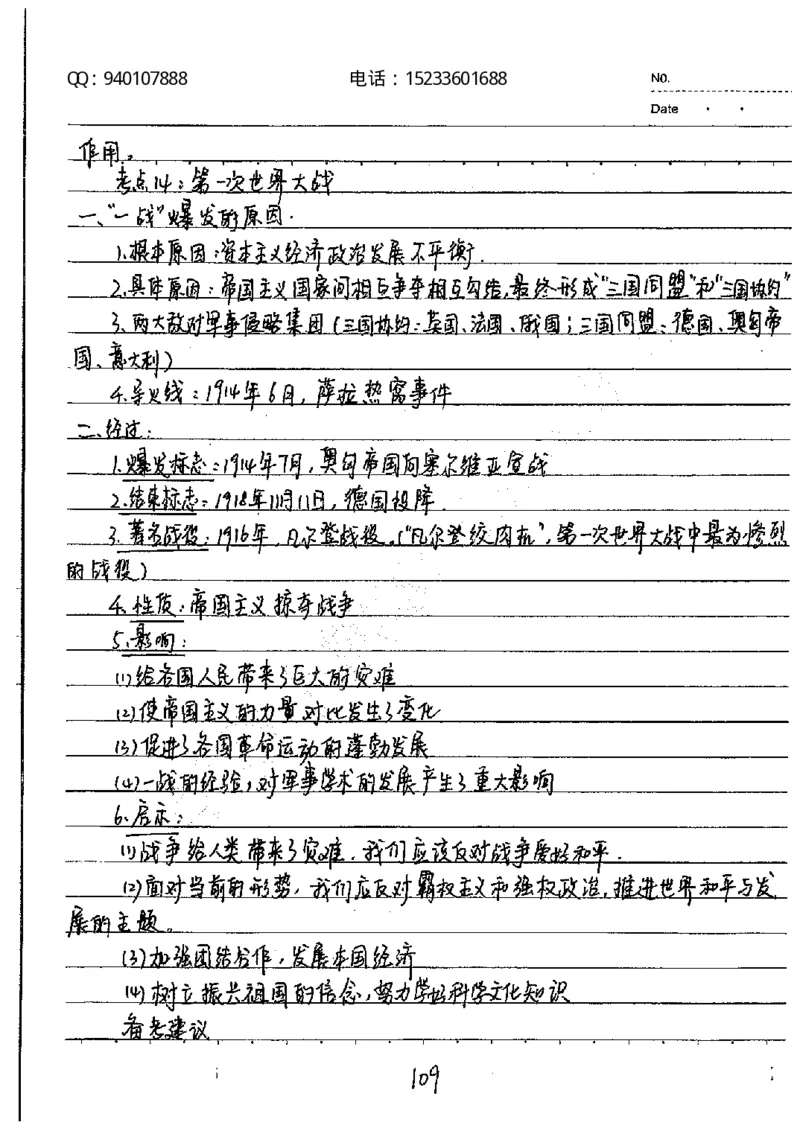 QQ：940107888 电话：15233601688 NO.
Date
作用。
考点14：第一次世界大战
一、“一战”爆发的原因.
1.根本原因：资本主义经济政治发展不平衡.
2.具体原因：帝国主义国家间相互争夺相互勾结,最终形成“三国同盟”和“三国协约”
3、两大敌对军事侵略集团(三国协约：英国、法国、俄国；三国同盟：德国、奥匈帝
国、意大利)
4.导火线：1914年6月，萨拉热窝事件
二、经过：
1.爆发标志：1914年7月，奥匈帝国向塞尔维亚宣战
2.结束标志：1918年11月11日，德国投降.
3.著名战役：1916年，凡尔登战役。(“凡尔登绞肉机”，第一次世界大战中最为惨烈
的战役)
4.性质：帝国主义掠夺战争
5.影响：
(1)给各国人民带来了巨大的灾难
(2)使帝国主义的力量对比发生了变化
(3)促进了各国革命运动的蓬勃发展
(4)一战的经验，对军事学术的发展产生了重大影响
6.启示：
(1)战争给人类带来了灾难，我们应该反对战争爱好和平.
(2)面对当前的形势，我们应反对霸权主义和强权政治,推进世界和平与发
展的主题。
(3)加强团结合作，发展本国经济
(4)树立振兴祖国的信念，努力学好科学文化知识
备考建议
109